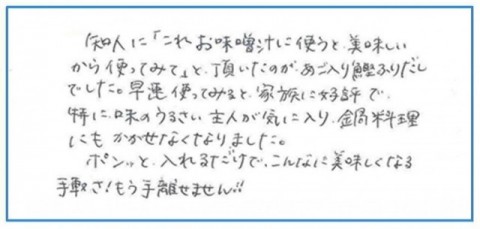 知人に「これお味噌汁に使うと、美味しい
から使ってみて」と、頂いたのが、あご入り鰹ふりだし
でした。早速使ってみると、家族に好評で、
特に、味のうるさい主人が気に入り、鍋料理
にもかかせなくなりました。
ポンッと、入れるだけで、こんなに美味しくなる
手軽さ!もう手離せません!!